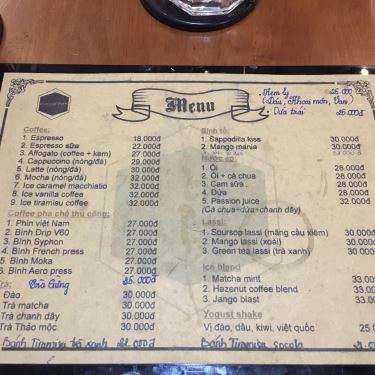 Menu
Kem ly 25.000
(Dâu, Khoai môn, Van)
Dừa trái 25.000đ
Coffee:
1. Espresso 18.000đ
2. Espresso sữa 22.000đ
3. Affogato (coffee + kem) 27.000đ
4. Cappucino (nóng/đá) 29.000đ
5. Latte (nóng/đá) 30.000đ
6. Mocha (nóng/đá) 32.000đ
7. Ice caramel macchiato 32.000đ
8. Ice vanilla coffee 32.000đ
9. Ice tiramisu coffee 32.000đ
Coffee pha chế thủ công:
1. Phin việt Nam 27.000đ
2. Bình Drip V60 27.000đ
3. Bình Syphon 27.000đ
4. Bình French press 27.000đ
5. Bình Moka 27.000đ
6. Bình Aero press 27.000đ
Trà:
Trà Gừng 25.000đ
Đào 30.000đ
Trà matcha 30.000đ
Trà chanh dây 30.000đ
Trà Thảo mộc 30.000đ
Bánh Tiramisu trà xanh
Sinh tố:
1. Sappodilla kiss 30.000đ
2. Mango mania 30.000đ
Nước ép:
1. Ổi 28.000đ
2. Ổi + cà chua 28.000đ
3. Cam sữa 28.000đ
4. Dứa 28.000đ
5. Passion juice 32.000đ
(Cà chua+dứa+chanh dây)
Lassi:
1. Soursop lassi (mãng cầu xiêm) 30.000đ
2. Mango lassi (xoài) 30.000đ
3. Green tea lassi (trà xanh) 30.000đ
Ice blend
1. Matcha mint 33.000đ
2. Hazelnut coffee blend 33.000đ
3. Jango blast 33.000đ
Yogust shake
Vị đào, dâu, kiwi, việt quốc
Bánh Tiramisu socola